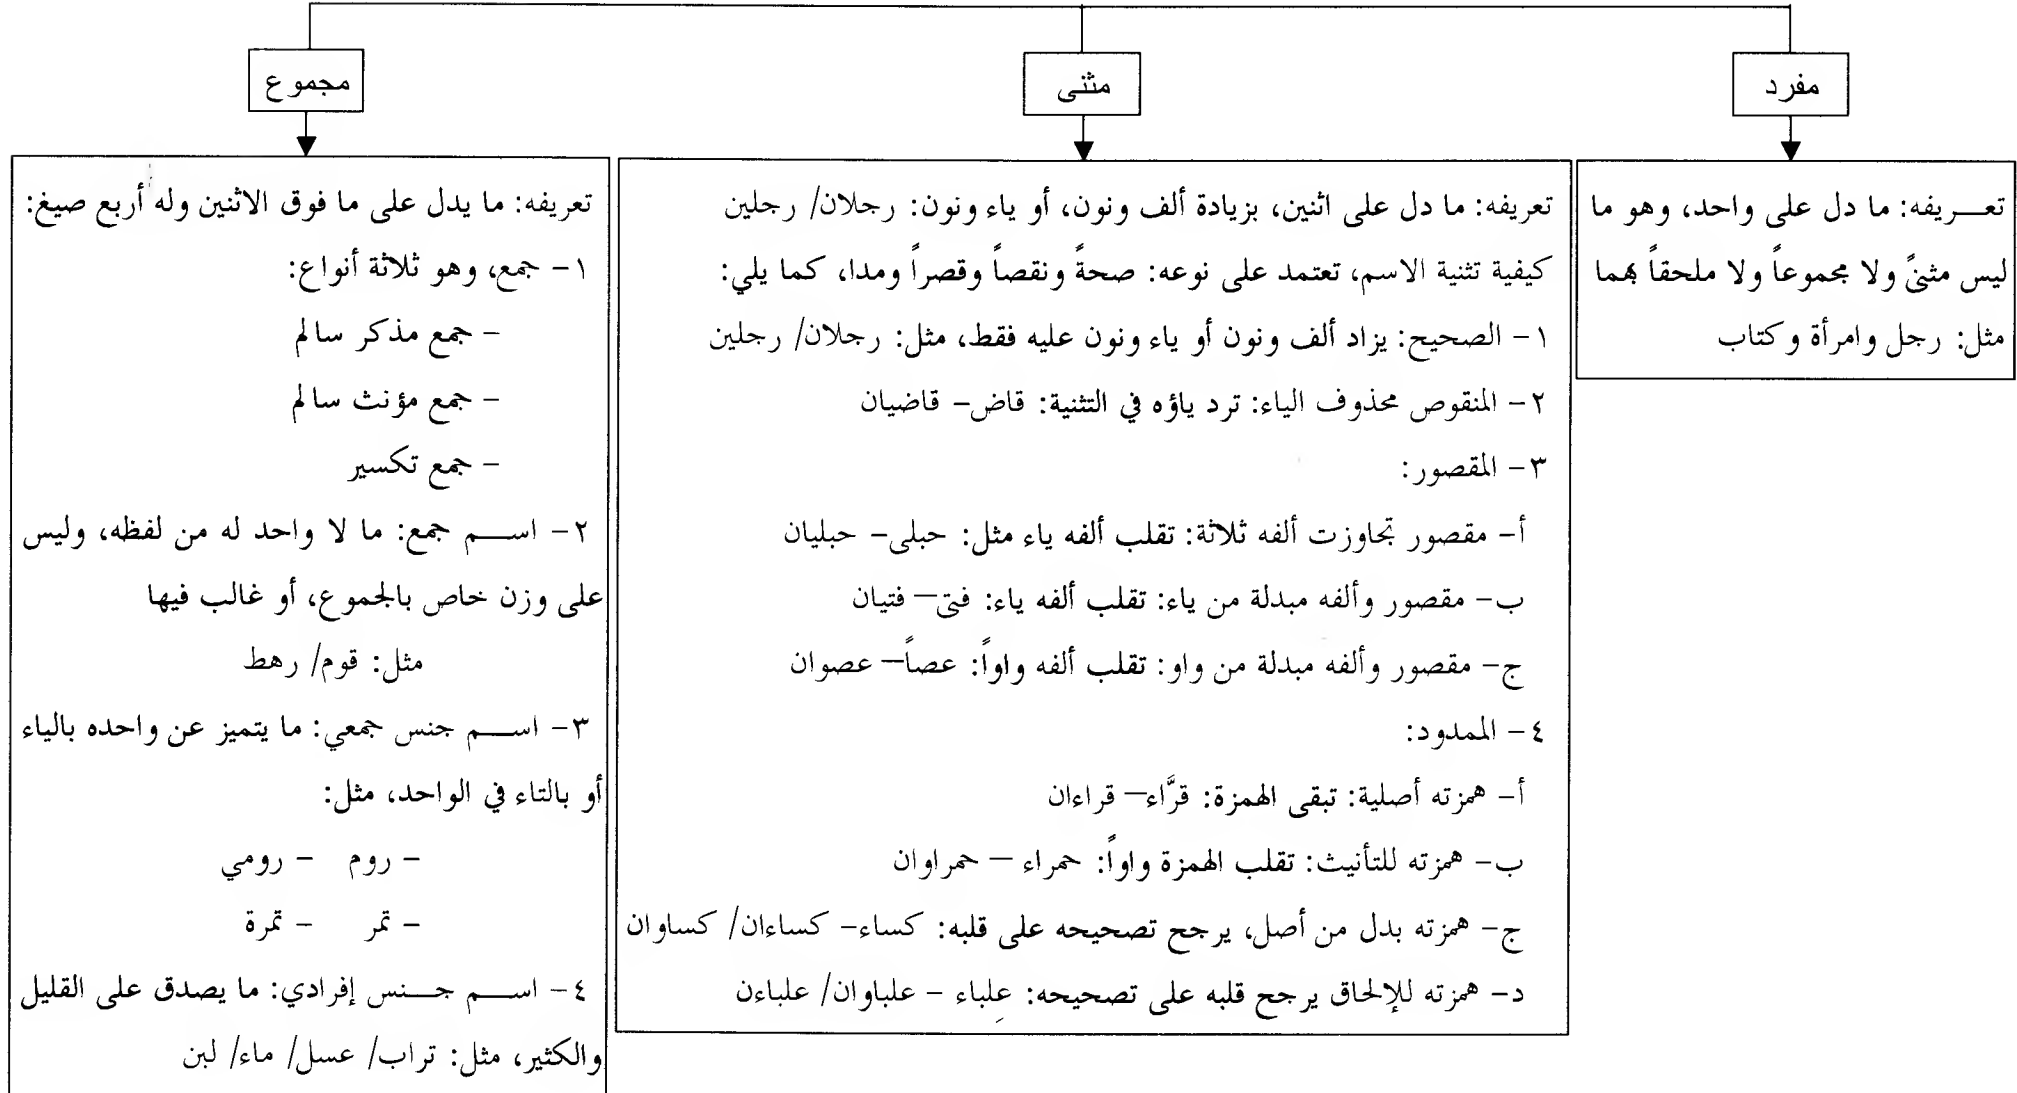 مفرد
تعـــريفه: ما دل على واحد، وهو ما
ليس مثنىً ولا مجموعاً ولا ملحقاً بهما
مثل: رجل وامرأة وكتاب
مثنى
تعريفه: ما دل على اثنين، بزيادة ألف ونون، أو ياء ونون: رجلان/ رجلين
كيفية تثنية الاسم، تعتمد على نوعه: صحةً ونقصاً وقصراً ومدا، كما يلي:
١- الصحيح: يزاد ألف ونون أو ياء ونون عليه فقط، مثل: رجلان/ رجلين
٢- المنقوص محذوف الياء: ترد ياؤه في التثنية: قاض- قاضيان
٣- المقصور:
أ- مقصور تجاوزت ألفه ثلاثة: تقلب ألفه ياء مثل: حبلى- حبليان
ب- مقصور وألفه مبدلة من ياء: تقلب ألفه ياء: فتى– فتيان
ج- مقصور وألفه مبدلة من واو: تقلب ألفه واواً: عصاً– عصوان
٤- الممدود:
أ- همزته أصلية: تبقى الهمزة: قرَّاء– قراءان
ب- همزته للتأنيث: تقلب الهمزة واواً: حمراء – حمراوان
ج- همزته بدل من أصل، يرجح تصحيحه على قلبه: كساء- كساءان/ كساوان
د- همزته للإلحاق يرجح قلبه على تصحيحه: عِلباء - علباوان/ علباءن
مجموع
تعريفه: ما يدل على ما فوق الاثنين وله أربع صيغ:
١- جمع، وهو ثلاثة أنواع:
- جمع مذكر سالم
- جمع مؤنث سالم
- جمع تكسير
٢- اســـم جمع: ما لا واحد له من لفظه، وليس
على وزن خاص بالجموع، أو غالب فيها
مثل: قوم/ رهط
٣- اســـم جنس جمعي: ما يتميز عن واحده بالياء
أو بالتاء في الواحد، مثل:
- روم - رومي
- تمر - تمرة
٤- اســـم جـــنس إفرادي: ما يصدق على القليل
والكثير، مثل: تراب/ عسل/ ماء/ لبن